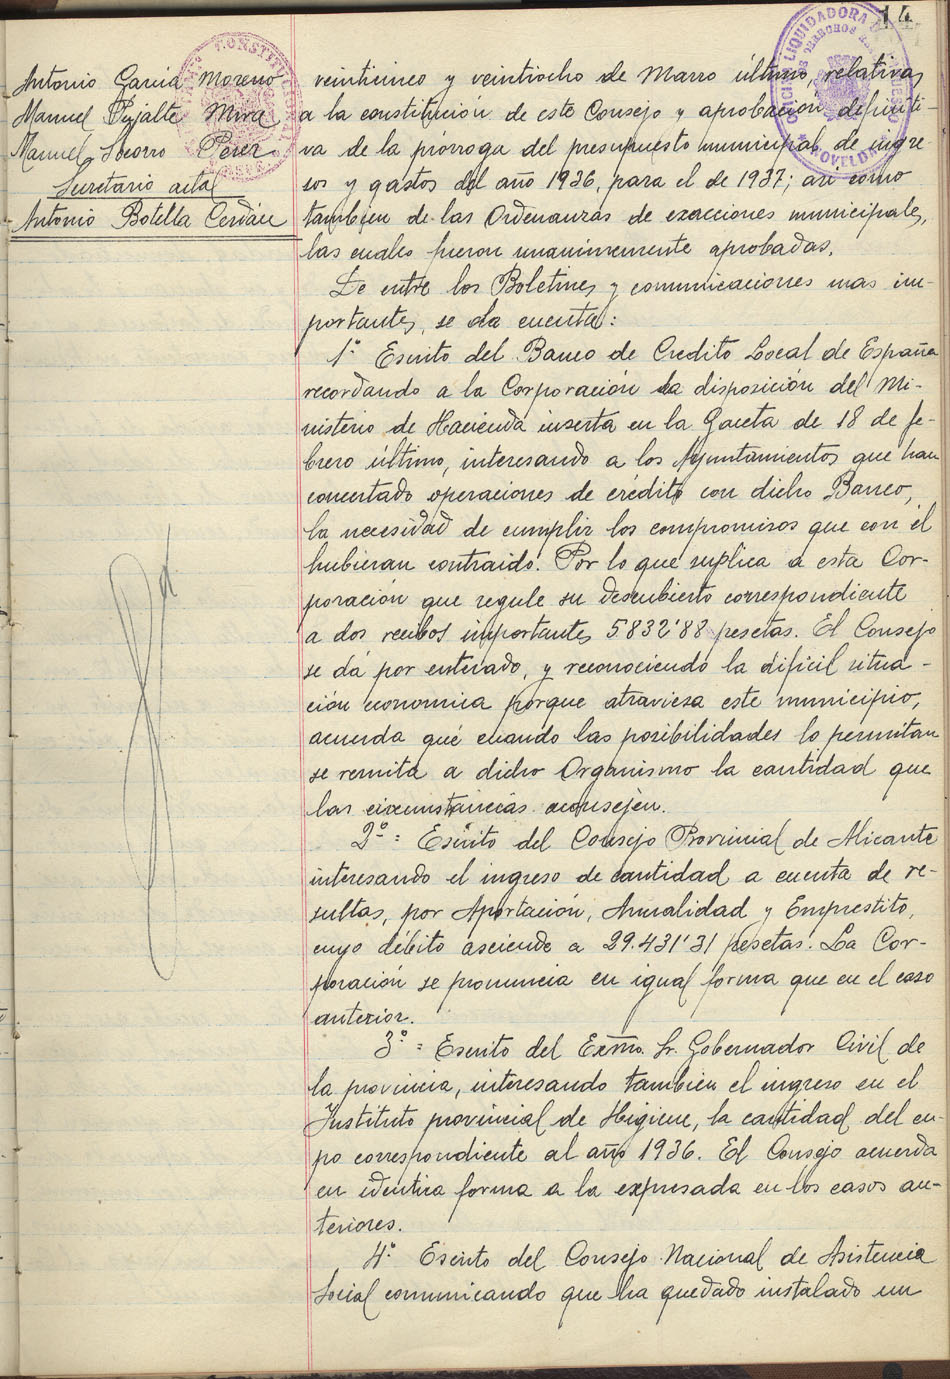 14
Antonio García Moreno
Manuel Pujalte Mira
Manuel Socorro Perez
Secretario actal
Antonio Botella Cerdán
veinticinco y veintiocho de Marzo último, relativas
a la constitución de este Consejo y aprobación definiti-
va de la prórroga del presupuesto municipal de ingre
sos y gastos del año 1936, para el de 1937; asi como
tambien de las Ordenanzas de exacciones municipales,
las cuales fueron unanimemente aprobadas.
De entre los Boletines y comunicaciones mas im-
portantes, se da cuenta:
1º Escrito del Banco de Credito Local de España
recordando a la Corporación la disposición del Mi-
nisterio de Hacienda inserta en la Gaceta de 18 de fe-
brero último, interesando a los Ayuntamientos que han
concertado operaciones de crédito con dicho Banco,
la necesidad de cumplir los compromisos que con él
hubieran contraido. Por lo que suplica a esta Cor-
poración que regule su descubierto correspondiente
a dos recibos importantes 5832'88 pesetas. El Consejo
se dá por enterado, y reconociendo la dificil situa-
ción economica porque atraviesa este municipio,
acuerda que cuando las posibilidades lo permitan
se remita a dicho Organismo la cantidad que
las circunstancias aconsejen.
2º = Escrito del Consejo Provincial de Alicante
interesando el ingreso de cantidad a cuenta de re-
sultas, por Aportación, Anualidad y Emprestito,
cuyo débito asciende a 29.431'31 pesetas. La Cor-
poración se pronuncia en igual forma que en el caso
anterior.
3º = Escrito del Exmo. Sr. Gobernador Civil de
la provincia, interesando tambien el ingreso en el
Instituto provincial de Higiene, la cantidad del cu-
po correspondiente al año 1936. El Consejo acuerda
en identica forma a la expresada en los casos an-
teriores.
4º Escrito del Consejo Nacional de Asistencia
Social comunicando que ha quedado instalado un